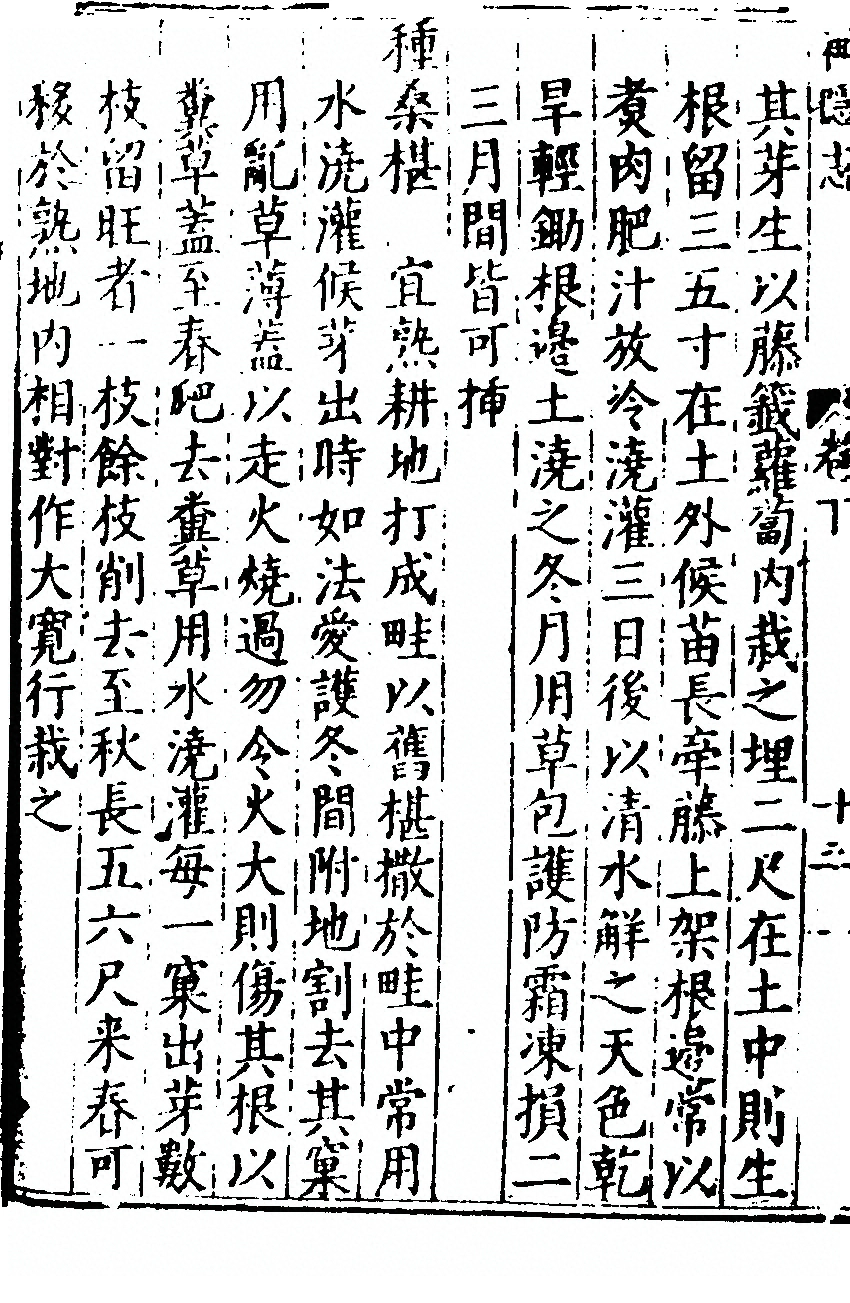 卷下
十三
其芽生以藤籤蘿蔔内栽之埋二尺在土中則生
根留三五寸在土外候苗長牽藤上架根邉常以
煑肉肥汁放冷澆灌三日後以清水解之天色乾
旱輕鋤根邉土澆之冬月用草包護防霜凍損二
三月間皆可揷
種桑椹　宜熟耕地打成畦以舊椹撒於畦中常用
水澆灌候芽出時如法愛護冬間附地割去其窠
用亂草薄蓋以走火燒過勿令火大則傷其根以
糞草蓋至春耙去糞草用水澆灌每一窠出芽數
枝留旺者一枝餘枝削去至秋長五六尺来春可
移於熟地内相對作大寛行栽之